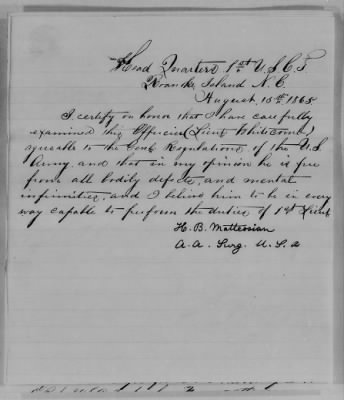 Head Quarters 1st U.S.C.T
Roanoke Island N.C.
August 15th 1865
I certify on honor that I have carefully
examined this Officer (Lieut Whitcomb)
agreeable to the Genl Regulations of the U.S
Army, and that in my opinion he is free
from all bodily defects, and mental
infirmities, and I believe him to be in every
way capable to perform the duties of 1st Lieut
H. B. Mattessian
A. A. Surg. U. S. A